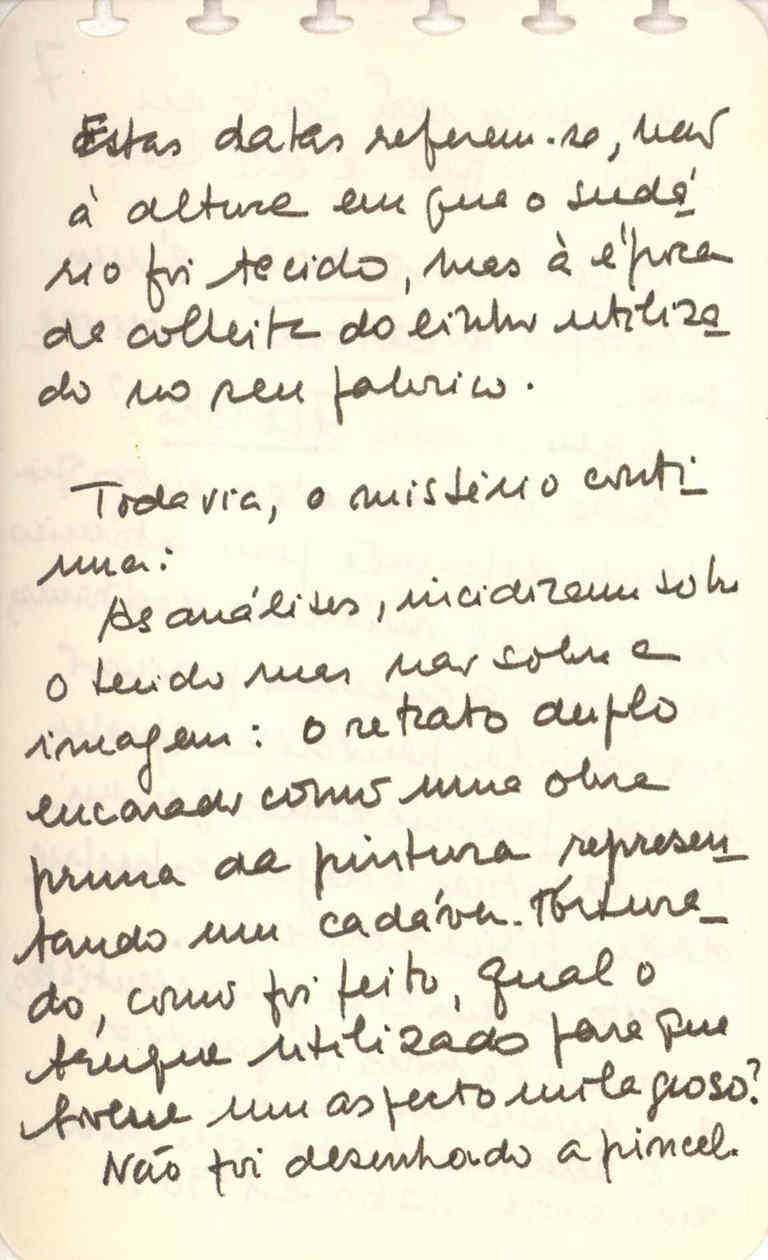 Estas datas referem-se, não
à altura em que o sudá
rio foi tecido, mas à época
de colheita do linho utiliza
do no seu fabrico.
Todavia, o mistério conti
nua:
As análises, incidiram sobre
o tecido mas não sobre a
imagem: o retrato duplo
encarado como uma obra
prima da pintura represen
tando um cadáver. Tortura
do, como foi feito, qual o
truque utilizado para que
tivesse um aspecto milagroso?
Não foi desenhado a pincel.